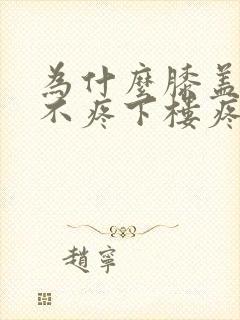 為什麼膝蓋
不疼下樓疼
趙寧